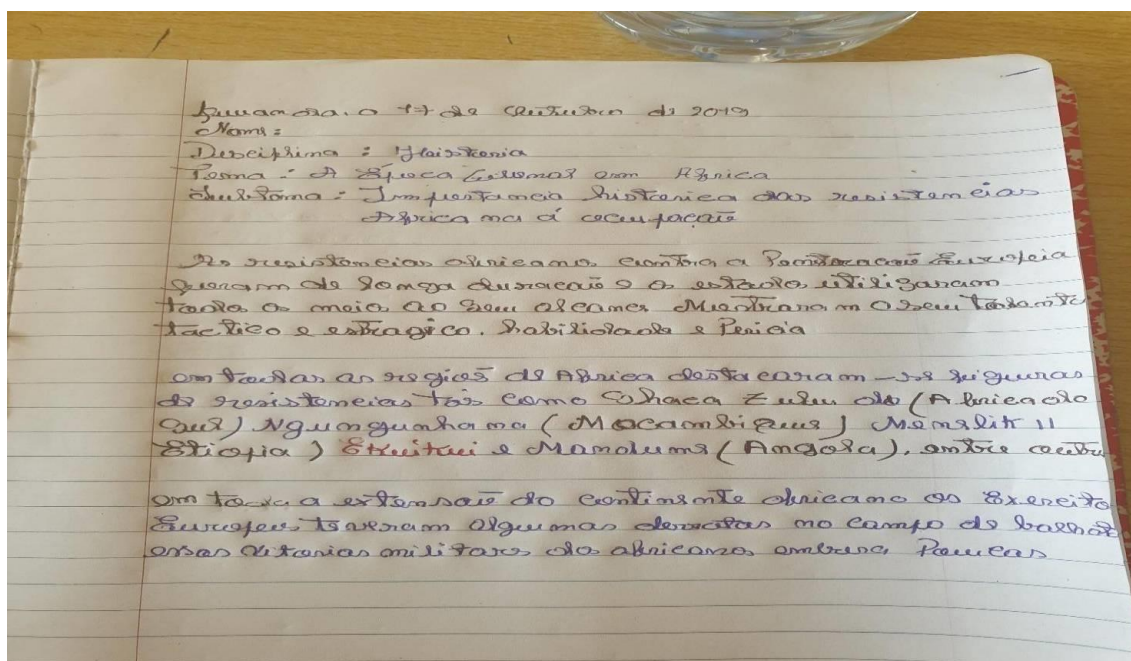 17 de outubro de 2019
Nome:
Desciplina: Haistoria
Tema: A Época Colonial em Africa
Subtema: Importancia historica das resistencias
Africana á ocupaçaõ
As resistencias africana contra a Penitracaõ Europeia
foram de longa duracaõ e o estado utilizaram
todo os meio ao seu alcance Mostraram o seu talento
tactico e estragico. habilidade e Pericia
em todas as regioẽ de Africa destacaram-se figuras
de resistencias tais como Shaca Zulu do (Africa do
Sul) Ngungunhama (Mocambique) Menelik II
Etiopia) Ekuikui e Mandume (Angola), entre outro
em toda a extensaõ do continente africano os Exercito
Europeu tiveram algumas derrotas no campo de
essas vitorias militare do africano embora Poucas